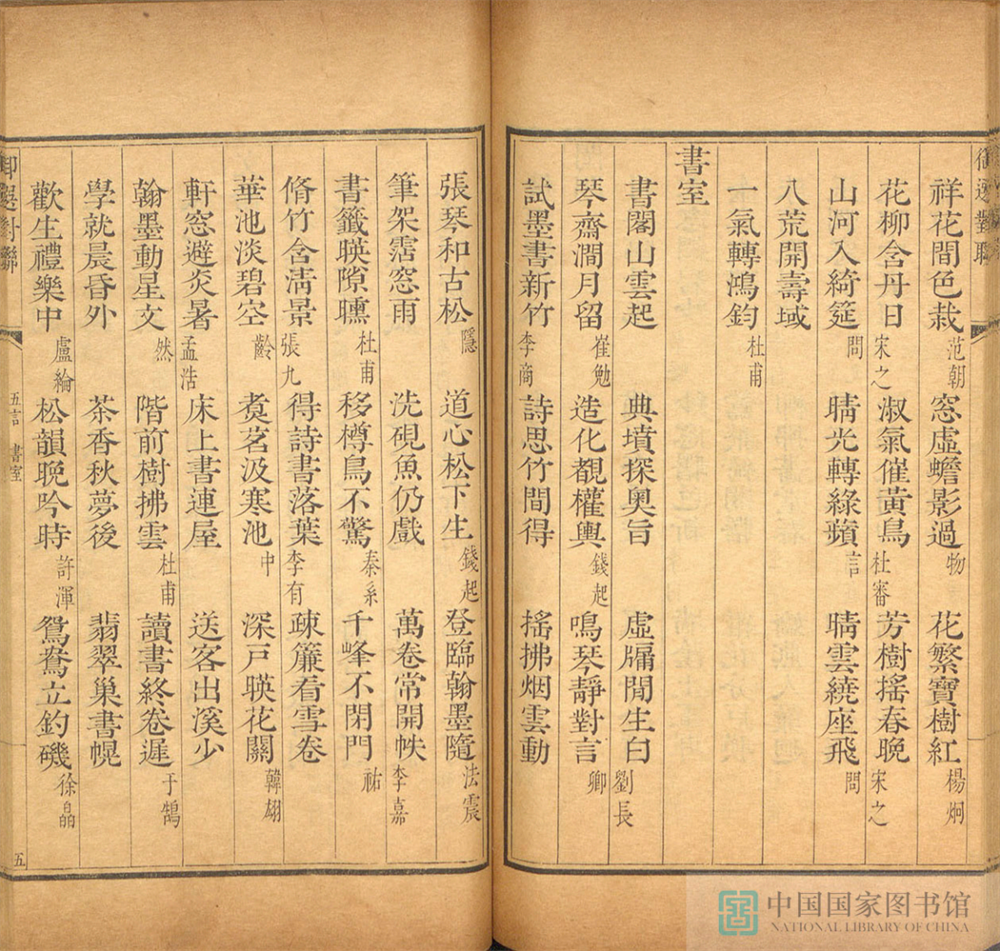 御選對聯
祥花間色栽 范朝 窓虛蟾影過 物 花繁寶樹紅 楊炯
花柳含丹日 宋之 淑氣催黃鳥 杜審 芳樹搖春晚 宋之
山河入綺筵 問 晴光轉綠蘋 言 晴雲繞座飛 問
八荒開壽域
一氣轉鴻鈞 杜甫
書室
書閣山雲起 典墳探奧旨 虛牖閒生白
琴齋澗月留 崔勉 造化覩權輿 錢起 鳴琴靜對言 劉長卿
試墨書新竹 李商 詩思竹間得 搖拂烟雲動
張琴和古松 隱 道心松下生 錢起 登臨翰墨隨 法震
筆架霑窓雨 洗硯魚仍戲 萬卷常開帙 李嘉
書籤暎隙曛 杜甫 移樽鳥不驚 秦系 千峰不閉門 祐
脩竹含淸景 張九 得詩書落葉 李有 疎簾看雪卷
華池淡碧空 齡 煑茗汲寒池 中 深戸暎花關 韓翃
軒窓避炎暑 孟浩 床上書連屋 送客出溪少
翰墨動星文 然 階前樹拂雲 杜甫 讀書終卷遲 于鵠
學就晨昏外 茶香秋夢後 翡翠巢書幌
歡生禮樂中 盧綸 松韻晚吟時 許渾 鴛鴦立釣磯 徐皛
御選對聯 五言 書室 五
中国国家图书馆
NATIONAL LIBRARY OF CHINA